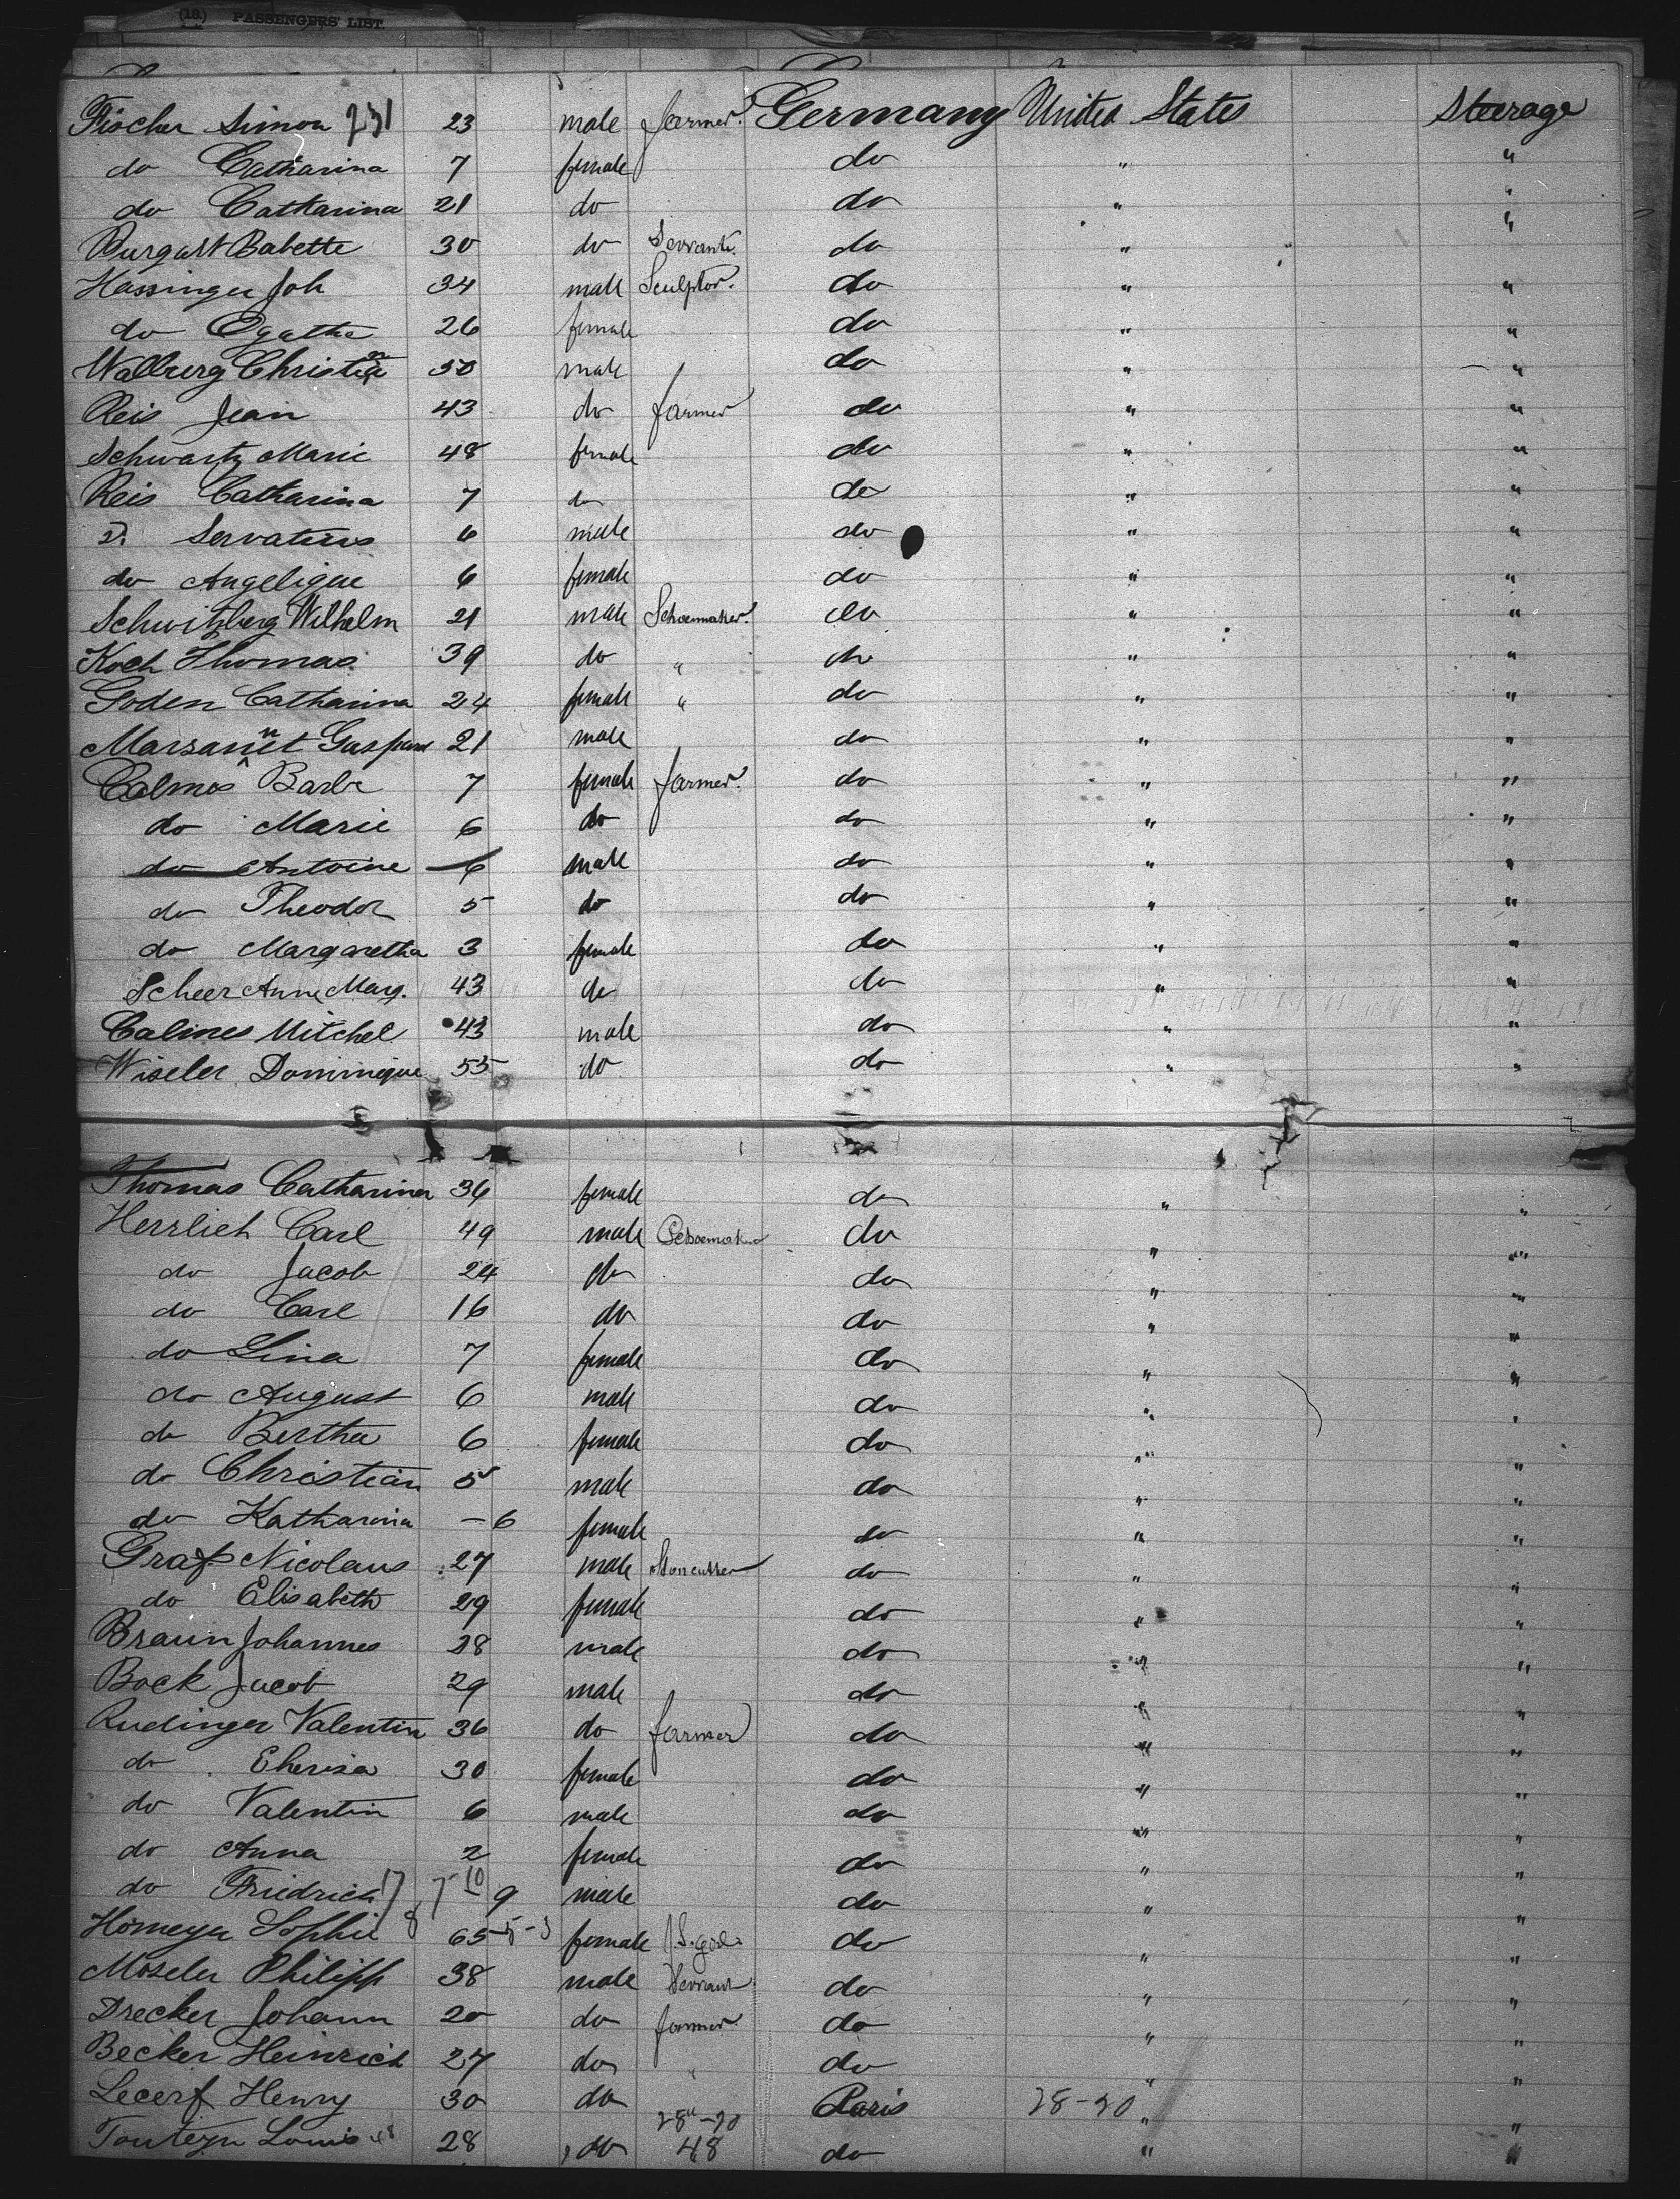 (18.) PASSENGERS' LIST.
Fischer Simon 231 23 male farmer Germany United States Steerage
do Catharina 7 female do " "
do Catharina 21 do do " "
Burgart Babette 30 do Servant. do " "
Hassinger Joh 34 male Sculptor. do " "
do Agatha 26 female do " "
Wallburg Christian 50 male do " "
Reis Jean 43 do farmer do " "
Schwartz Marie 48 female do " "
Reis Catharina 7 do do " "
D. Servatius 6 male do " "
do Angelique 6 female do " "
Schwitzberg Wilhelm 21 male Schoemaker. do " "
Koch Thomas 39 do " do " "
Goden Catharina 24 female " do " "
Marsannet Gaspard 21 male do " "
Calmes Barbe 7 female farmer. do " "
do Marie 6 do do " "
do Antoine 6 male do " "
do Theodor 5 do do " "
do Margaretha 3 female do " "
Scheer Anne Marg. 43 do do " "
Calmes Mitchel 43 male do " "
Wiseler Dominique 55 do do " "
Thomas Catharina 36 female do " "
Herrlich Carl 49 male Schoemaker do " "
do Jacob 24 do do " "
do Carl 16 do do " "
do Lina 7 female do " "
do August 6 male do " "
do Bertha 6 female do " "
do Christian 5 male do " "
do Katharina - 6 female do " "
Graf Nicolaus 27 male Stoncutter do " "
do Elisabeth 29 female do " "
Braun Johannes 28 male do " "
Bock Jacob 29 male do " "
Ruedinger Valentin 36 do farmer do " "
do Eherisa 30 female do " "
do Valentin 6 male do " "
do Anna 2 female do " "
do Friedrich 17 7 - 10 9 male do " "
Homeyer Sophie 8 65 - 5 - 3 female do " "
Moseler Philipp 38 male Servant do " "
Drecker Johann 20 do farmer do " "
Becker Heinrich 27 do " do " "
Lecerf Henry 30 do Paris 28-20 " "
28-20
Louis 28 do 48 do " "